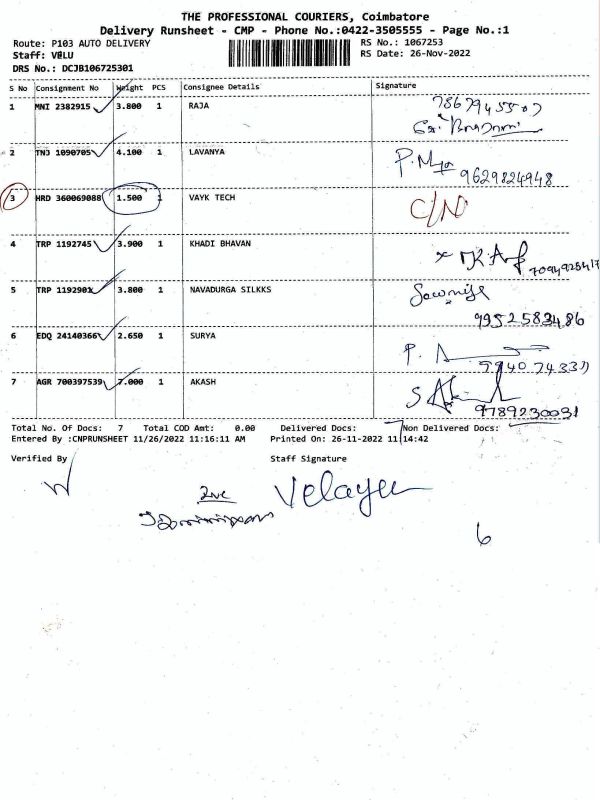 THE PROFESSIONAL COURIERS, Coimbatore
Delivery Runsheet - CMP - Phone No.:0422-3505555 - Page No.:1
Route: P103 AUTO DELIVERY
RS No.: 1067253
Staff: VELU
RS Date: 26-Nov-2022
DRS No.: DCJB106725301
S No Consignment No Weight PCS Consignee Details Signature
1 MNI 2382915 3.800 1 RAJA
2 TNJ 1090705 4.100 1 LAVANYA
9629824948
3 HRD 360069088 1.500 1 VAYK TECH C/N
4 TRP 1192745 3.900 1 KHADI BHAVAN
5 TRP 1192901 3.800 1 NAVADURGA SILKKS
9952583486
6 EDQ 24140366 2.650 1 SURYA
7 AGR 700397539 7.000 1 AKASH
9789230031
Total No. Of Docs: 7 Total COD Amt: 0.00 Delivered Docs: Non Delivered Docs:
Entered By :CNPRUNSHEET 11/26/2022 11:16:11 AM Printed On: 26-11-2022 11:14:42
Verified By Staff Signature
Velayu
6